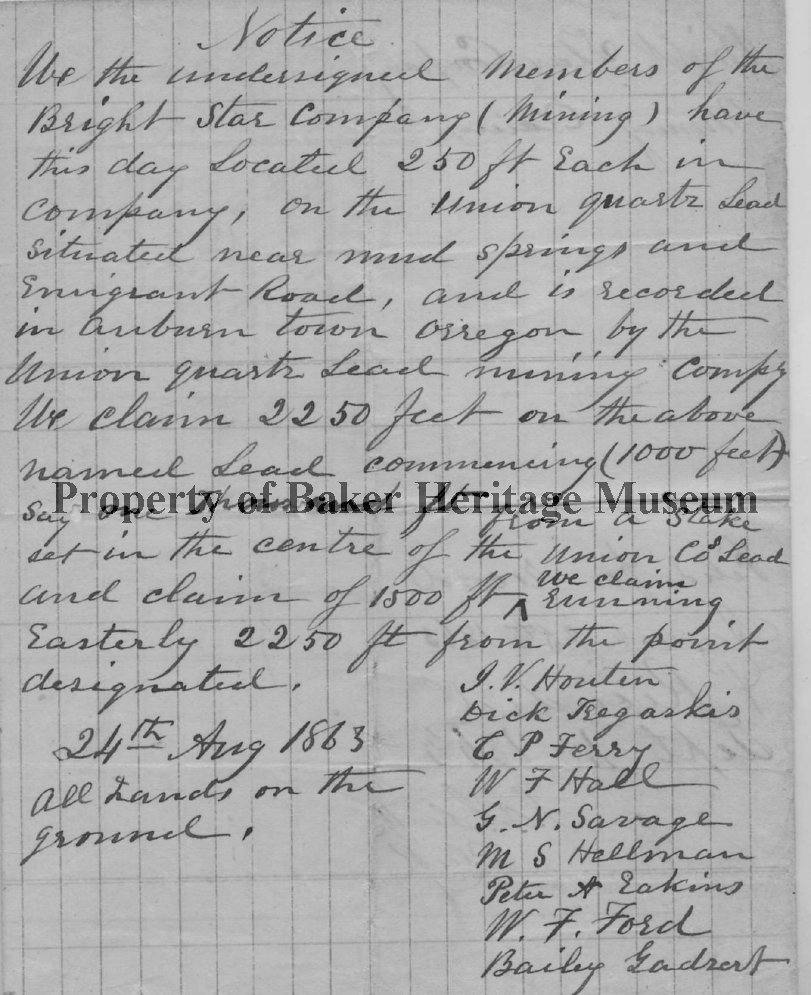 Notice
We the undersigned Members of the
Bright Star Company (Mining) have
this day Located 250 ft Each in
Company, on the Union quartz Lead
situated near mud springs and
Emigrant Road, and is recorded
in Auburn town Orregon by the
Union quartz Lead mining Compy
We claim 2250 feet on the above
named Lead commencing (1000 feet)
Say one Thousand ft from a Stake
Property of Baker Heritage Museum
set in the centre of the Union Cos Lead
and claim of 1500 ft ^ We claim Running
Easterly 2250 ft from the point
designated.
24th Aug 1863
All Lands on the
ground.
J. V. Houten
Dick Tregaskis
C P Ferry
W F Hall
G. N. Savage
M S Hellman
Peter A Eakins
W. F. Ford
Bailey